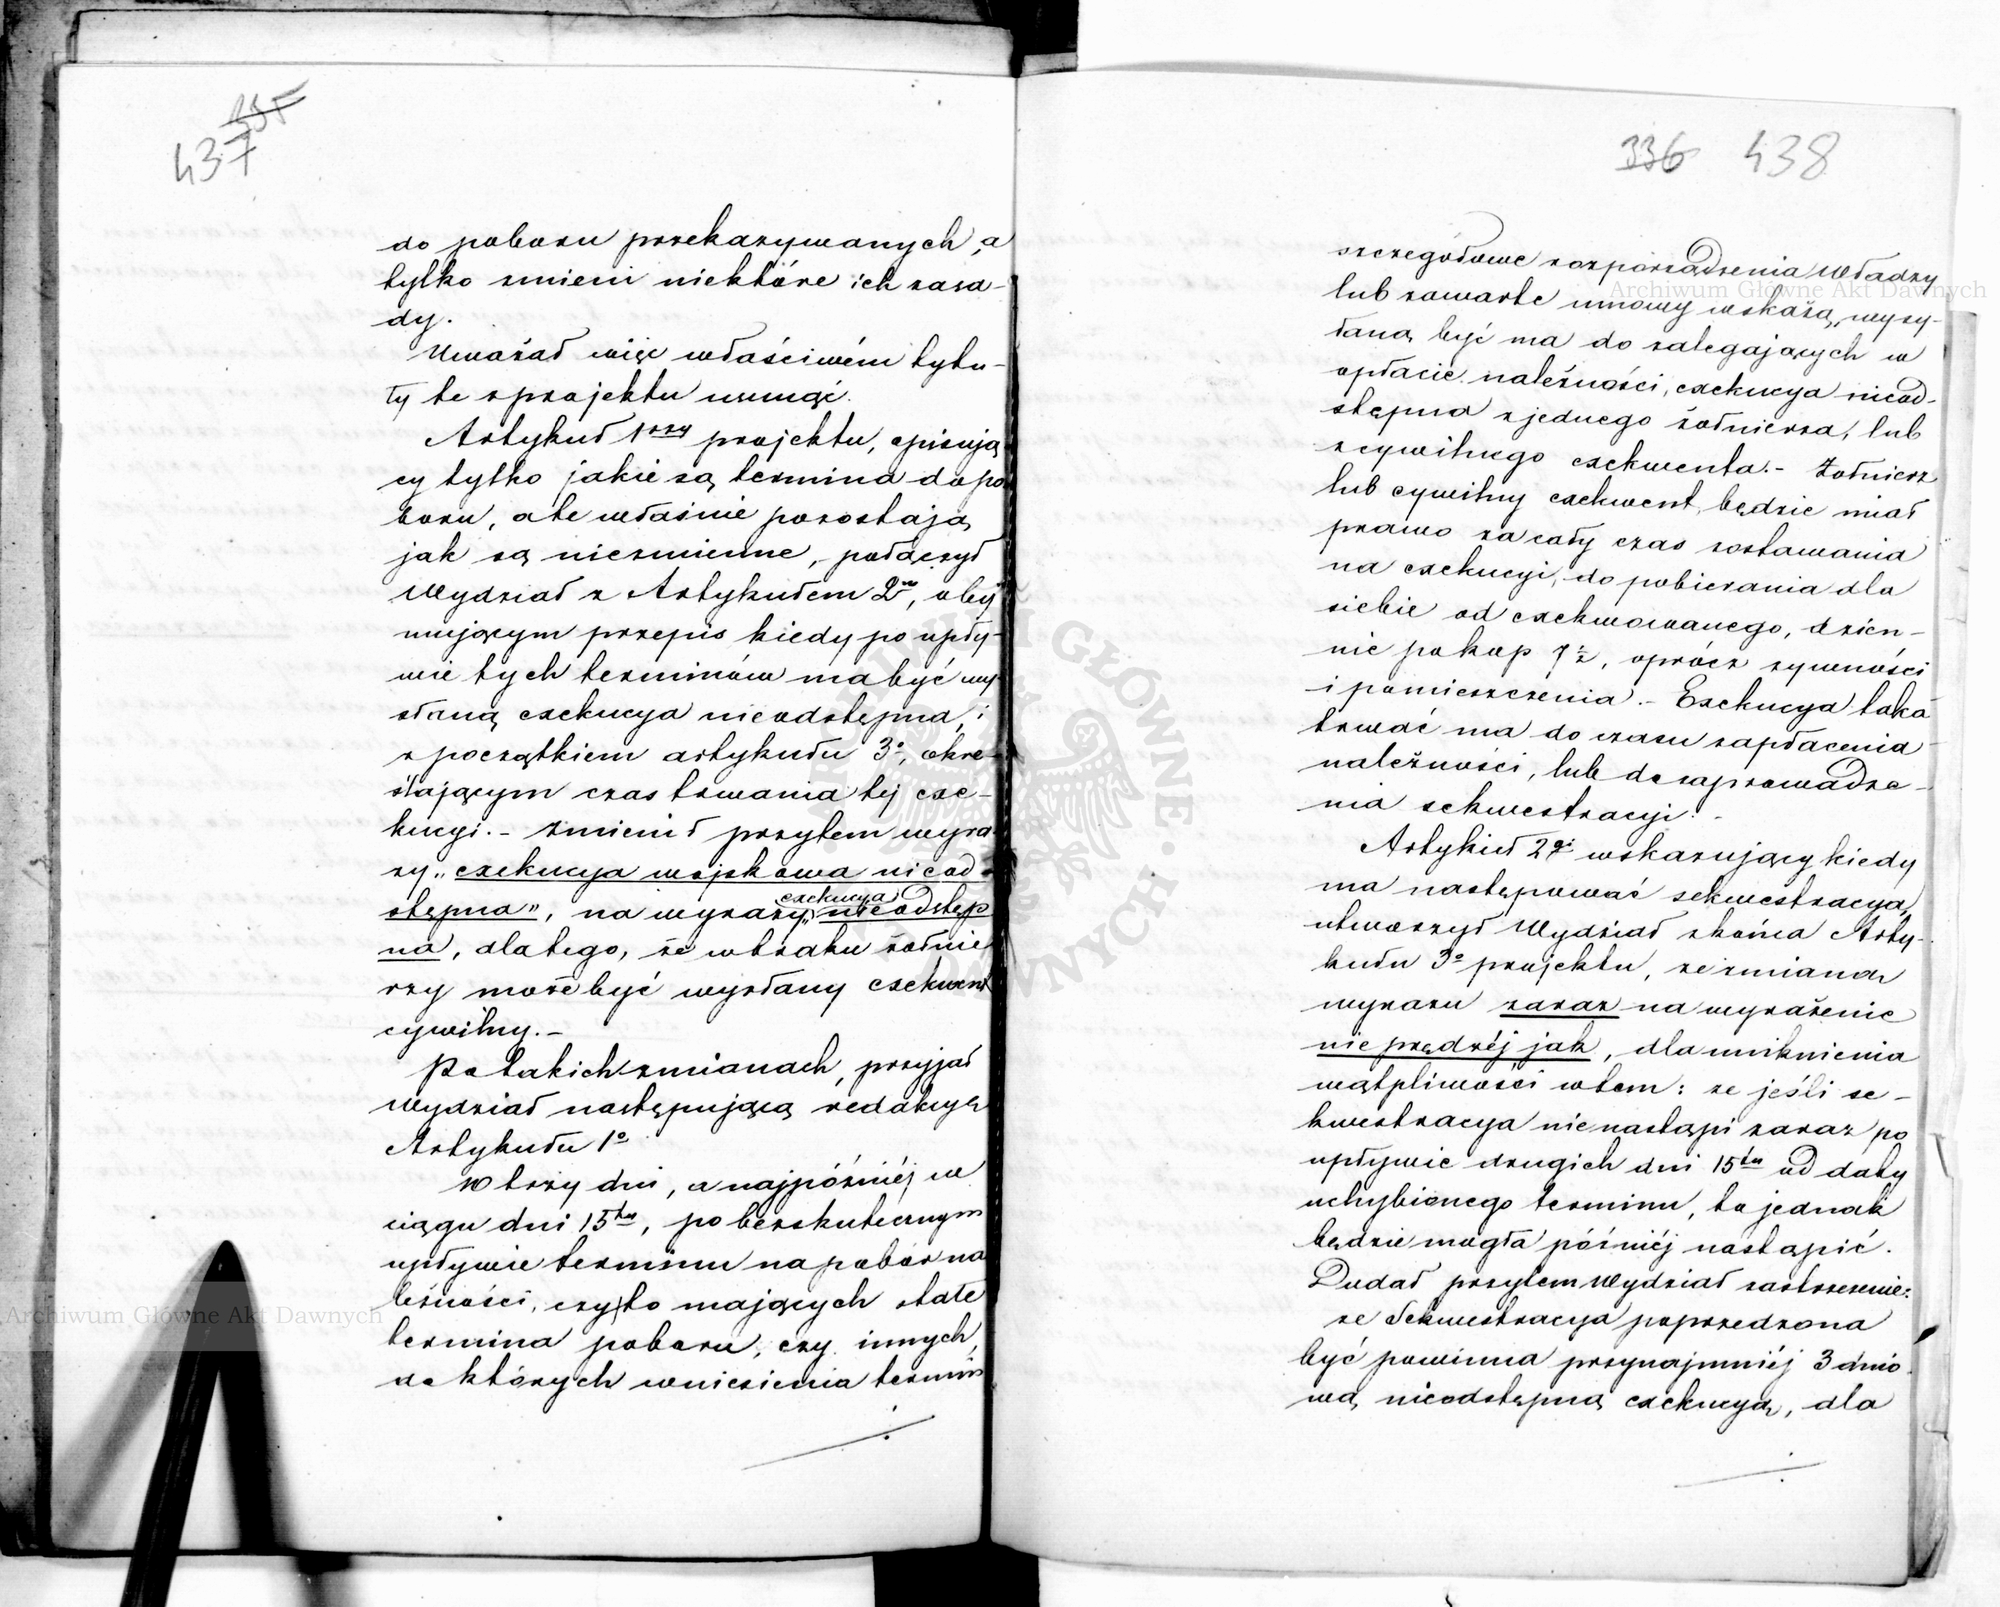 335
437
do poboru przekazywanych, a
tylko zmieni niektóre ich zasa-
dy.
Uważał więc właściwém tytu-
ły te z projektu usunąć.
Artykuł 1szy projektu, opisują
cy tylko jakie są termina do po
boru, ale właśnie pozostają
jak są niezmienne, połączył
Wydział z Artykułem 2m, obej
mującym przepis kiedy po upły-
wie tych terminów ma być wy-
słaną exekucya nieodstępna, i
z początkiem artykułu 3o, okre-
ślającym czas trwania tej exe-
kucyi.- Zmienił przytem wyra-
zy „exekucya wojskowa nieod-
stępna", na wyrazy „exekucya nieodstęp
na, dlatego, że w braku żołnie
rzy może być wysłany exekwent
cywilny.-
Po takich zmianach, przyjął
Wydział następującą redakcyę
Artykułu 1o
W trzy dni, a najpóźniéj w
ciągu dni 15tu, po bezskutecznym
upływie terminu na pobór na
leżności, czy to mających stałe
termina poboru, czy innych,
do których wniesienia termin
336 438
szczegółowe rozporządzenia Władzy
lub zawarte umowy wskażą, wysy-
łaną być ma do zalegających w
opłacie należności, exekucya nieod-
stępna z jednego żołnierza, lub
z cywilnego exekwenta.- Żołnierz
lub cywilny exekwent, będzie miał
prawo za cały czas zostawania
na exekucyi, do pobierania dla
siebie od exekwowanego, dzien-
nie po kop 7½, oprócz żywności
i pomieszczenia.- Exekucya taka
trwać ma do czasu zapłacenia
należności, lub do zaprowadze-
nia sekwestracyi.-
Artykuł 2gi wskazujący kiedy
ma następować sekwestracya,
utworzył Wydział z końca Arty-
kułu 3o projektu, ze zmianą
wyrazu zaraz na wyrażenie
nie prędzéj jak, dla uniknienia
wątpliwości w tem: że jeśli se-
kwestracya nie nastąpi zaraz po
upływie drugich dni 15tu od daty
uchybionego terminu, to jednak
będzie mogła późniéj nastąpić.
Dodał przytem Wydział zastrzeżenie:
że Sekwestracya poprzedzona
być powinna przynajmniéj 3 dnio
wą nieodstępną exekucyą, dla
Archiwum Główne Akt Dawnych
Archiwum Główne Akt Dawnych